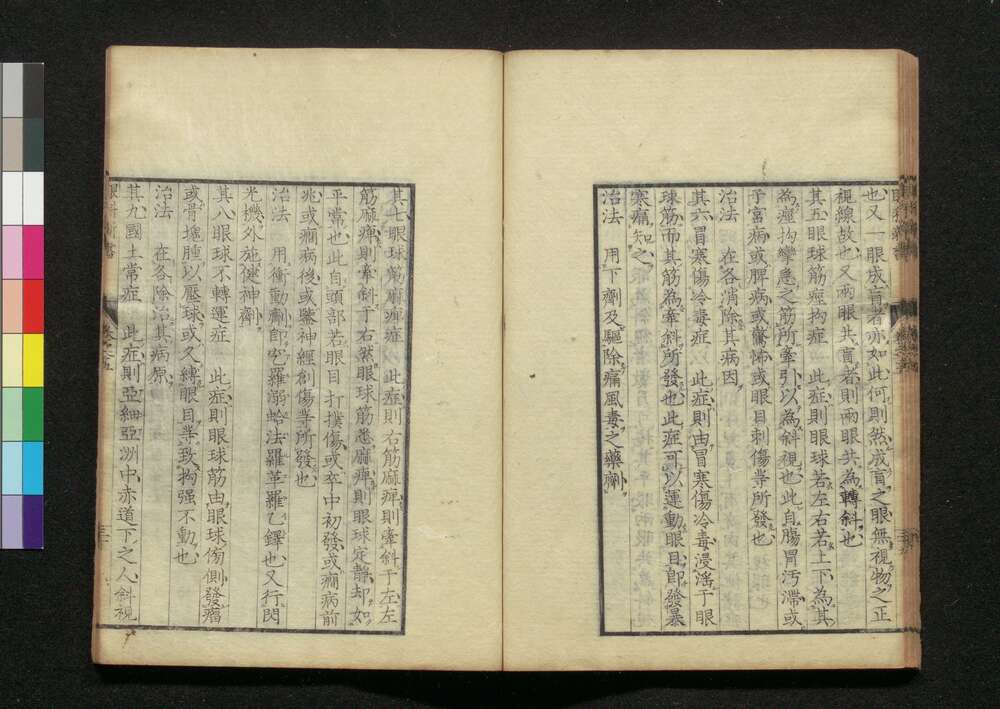 也又一眼成盲者亦如此何則然成盲之眼無視物之正
視線故也又兩眼共盲者則兩眼共為轉斜也
其五眼球筋痙拘症　此症則眼球若左右若上下為其
為痙拘攣急之筋所牽引以為斜視也此自腸胃汚滯或
子宮病或脾病或驚怖或眼目刺傷等所發也
治法　在各消除其病因
其六冒寒傷冷毒症　此症則由冒寒傷冷毒浸淫于眼
球筋而其筋為牽斜所發也此症可以運動眼目即發暴
寒痛知之
治法　用下劑及驅除痛風毒之藥劑
其七眼球筋麻痺症　此症則右筋麻痺則牽斜于左左
筋麻痺則牽斜于右然眼球筋悉麻痺則眼球定靜却如
平常也此自頭部若眼目打撲傷或卒中初發或癇病前
兆或癇病後或鑒神經創傷等所發也
治法　用衝動劑即乞羅溺蛤法羅華羅乙鐸也又行閃
光機外施健神劑
其八眼球不轉運症　此症則眼球筋由眼球傍側發瘤
或骨塊腫以壓球或久縛眼目等致拘强不動也
治法　在各除治其病原
其九國土常症　此症則亞細亞洲中赤道下之人斜視